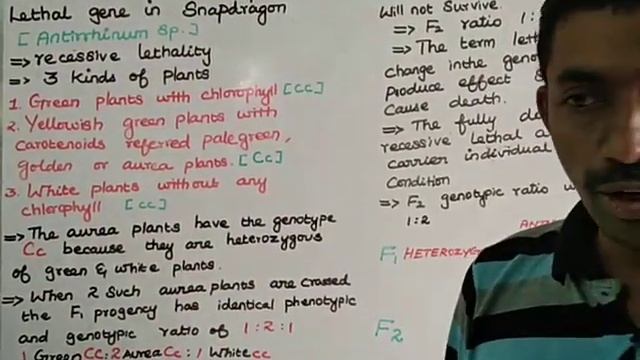 Lethal gene in Snapdragon
[Antirrhinum sp.]
⇒ recessive lethality
⇒ 3 kinds of plants
1. Green plants with chlorophyll [CC]
2. Yellowish green plants with
carotenoids referred palegreen,
golden or aurea plants. [Cc]
3. White plants without any
chlorophyll [cc]
⇒ The aurea plants have the genotype
Cc because they are heterozygous
of green & white plants.
⇒ When 2 such aurea plants are crossed
the F1 progency has identical phenotypic
and genotypic ratio of 1:2:1
1 Green CC: 2 Aurea Cc: 1 White cc
Will not Survive.
⇒ F2 ratio 1:
⇒ The term
change in the
Produce effect
Cause death.
⇒ The fully
recessive lethal
carrier individual
Condition
⇒ F2 genotypic ratio
1:2
F1
F2